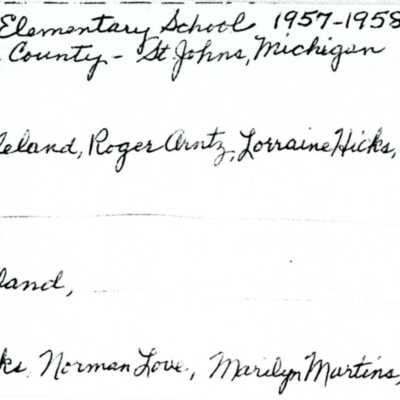 Elementary School 1957-1958
County - St Johns, Michigan
leland, Roger Arntz, Lorraine Hicks,
land,
ks, Norman Love, Marilyn Martins,